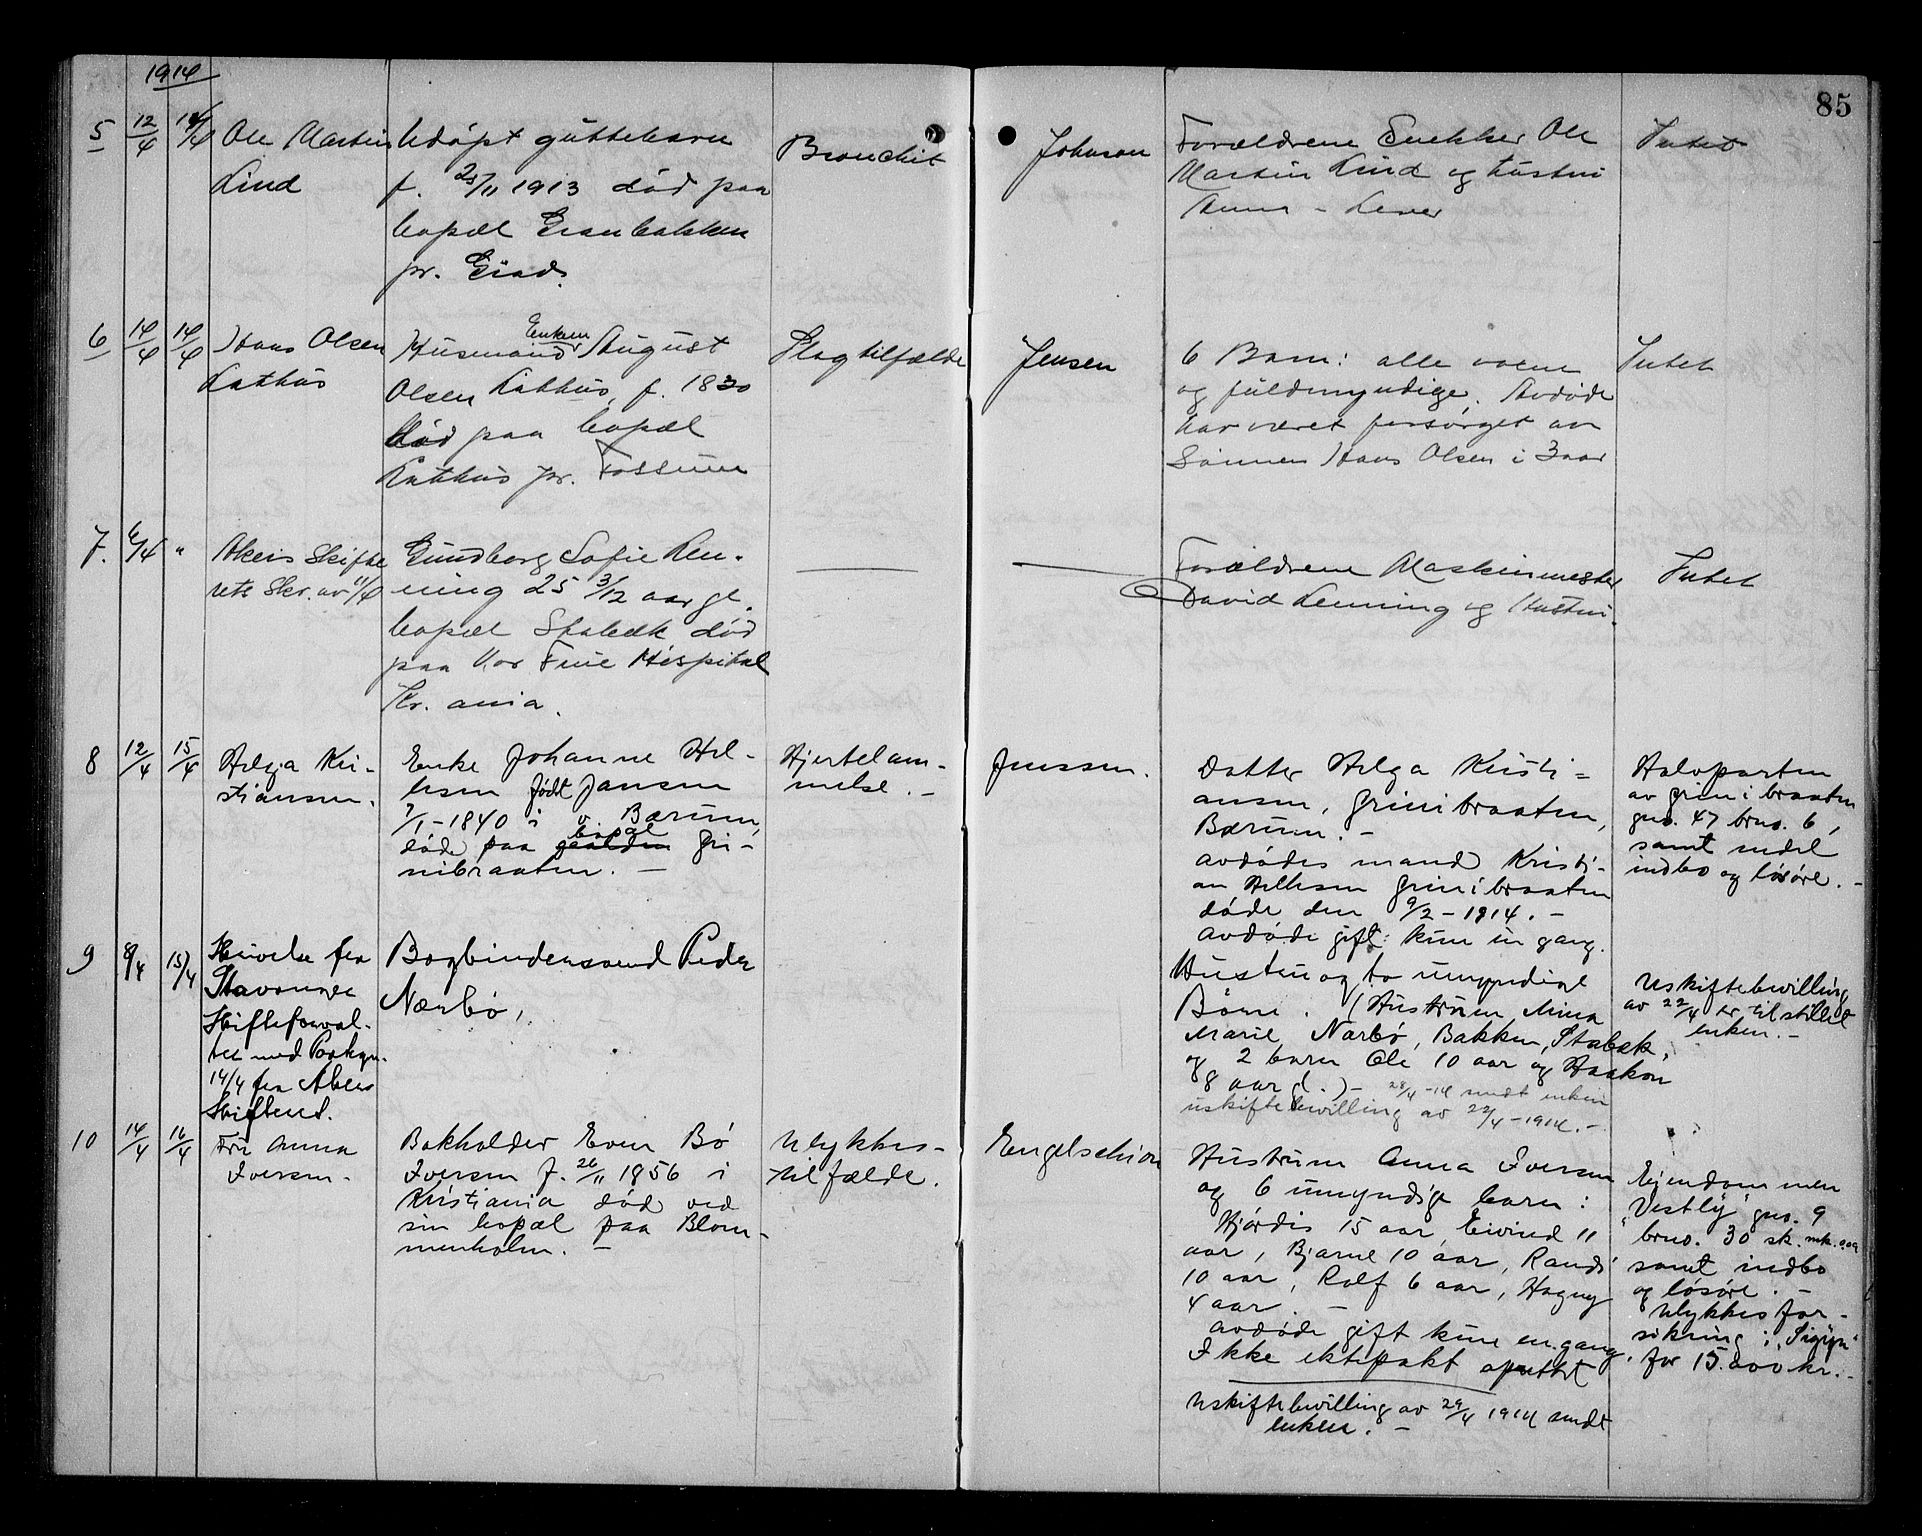 1914
85
5
12/4
14/4
Ole Martin
Lind
Udøpt guttebarn
f. 25/11 1913 død paa
bopæl Granbakken
pr. Griad.
Bronchit
Johnson
Forældrene Snekker Ole
Martin Lind og hustru
Anna
Intet
6
14/4
14/4
Hans Olsen
Kathus
Enkem
Husmand August
Olsen Kathus, f. 1830
død paa bopæl
Kathus pr. Fossum
Slagtilfælde
Jensen
6 Barn: alle voene
og fuldmyndige. Avdøde
har været forsørget av
Sønnen Hans Olsen i 3 aar
Intet
7.
6/4
"
Akers Skifte
rets Skr. av 11/4
Gundborg Sofie Len-
ning 25 3/12 aar gl.
bopæl Stabæk død
paa Vor Frue Hospital
Kr. ania.
Forældrene Maskinmester
David Lenning og Hustru.
Intet
8
12/4
15/4
Helga Kri-
stiansen.
Enke Johanne Hel-
lesen født Jansen
7/1-1840 i v. Bærum,
bopæl
døde paa gaarden Gri-
nibraaten. -
Hjertelam-
melse. -
Jenssen.
Datter Helga Kristi=
ansen, Grinibraaten,
Bærum. -
avdødes mand Kristi-
an Hellesen Grinibraaten
døde den 9/2-1914. -
avdøde gift kun én gang.
Halvparten
av Grinibraaten
gno. 47 brno. 6,
samt endel
indbo og løsøre. -
9
8/4
15/4
Skrivelse fra
Stavanger
Skifteforval-
ter med Paategn.
14/4 fra Akers
Skifteret.
Bogbindersvend Peder
Nærbø,
Hustru og to umyndige
Børn. (Hustruen Mina
Marie Nærbø, Bakken, Stabæk,
og 2 barn Ole 10 aar og Haakon
8 aar gl.) - 28/4-14 sendt enken
uskiftebevilling av 22/4-1914. -
Uskiftebevilling
av 22/4 er tilstillet
enken. -
10
14/4
16/4
Fru Anna
Iversen.
Bokholder Even Bø
Iversen f. 26/11 1856 i
Kristiania død ved
sin bopæl paa Blom-
menholm. -
Ulykkes-
tilfælde.
Engelschiøn
Hustruen Anna Iversen
og 6 umyndige barn:
Hjørdis 15 aar, Eivind 11
aar, Bjarne 10 aar, Randi
10 aar, Rolf 6 aar, Hagny
4 aar. -
avdøde gift kun en gang.
Ikke ektepakt oprettet
Uskiftebevilling av 29/4 1914 sendt
enken. -
Eiendommen
"Vestly" gno. 9
brno. 30 sk. mk. 0.09
samt indbo
og løsøre. -
Ulykkesfor-
sikring i "Sigyn"
for 15.000 kr. -